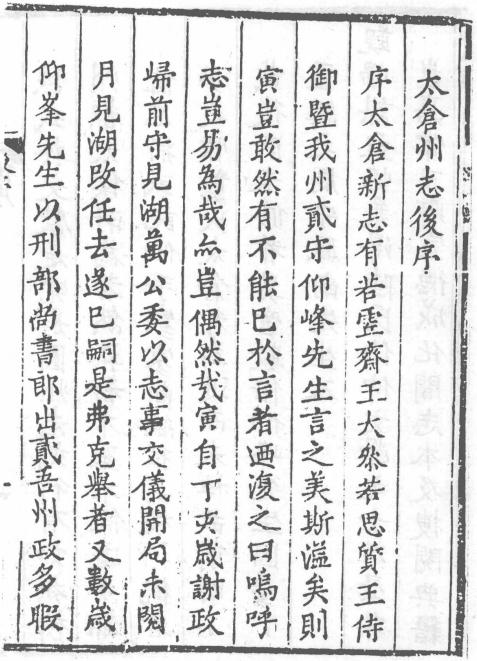 太倉州志後序
序太倉新志有若霊齋王大叅若思質王侍
御暨我州貳守仰峰先生言之美斯溢矣則
寅豈敢然有不能已於言者廼復之曰嗚呼
志豈易為哉亦豈偶然哉寅自丁亥歲謝政
歸前守見湖萬公委以志事交儀開局未閱
月見湖改任去遂已嗣是弗克舉者又數歲
仰峯先生以刑部尚書郎出貳吾州政多暇